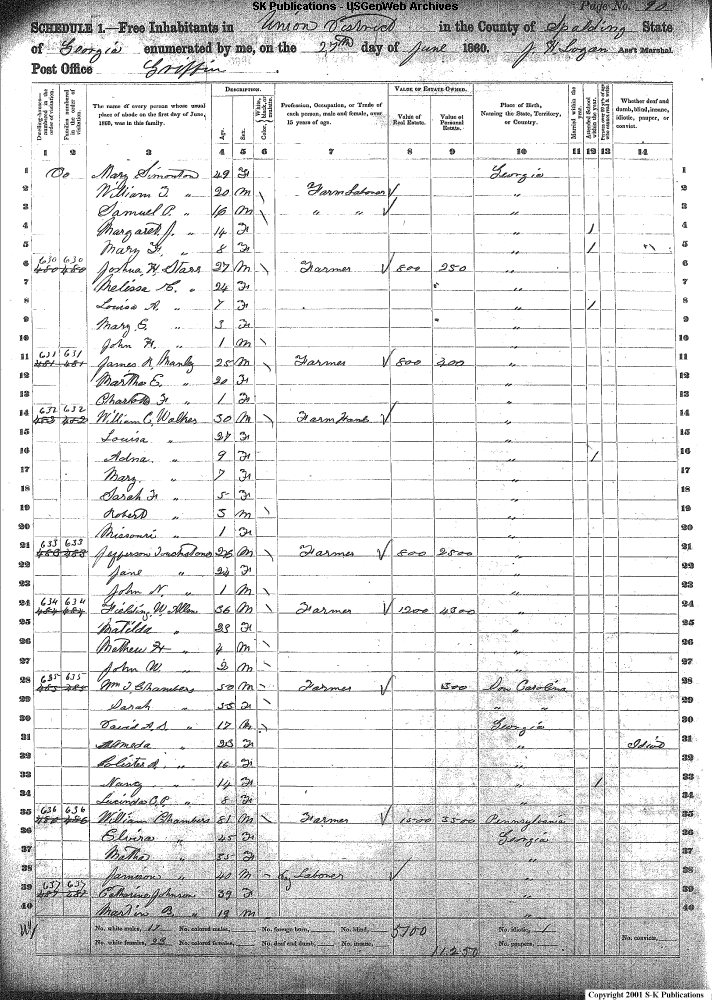 SK Publications - USGenWeb Archives
Page No. 90
SCHEDULE 1.—Free Inhabitants in Union District in the County of Spalding State
of Georgia enumerated by me, on the 27th day of June 1860. J H Logan Ass't Marshal.
Post Office Griffin
DESCRIPTION. VALUE OF ESTATE OWNED.
Dwelling-houses—numbered in the order of visitation. Families numbered in the order of visitation. The name of every person whose usual place of abode on the first day of June, 1860, was in this family. Age. Sex. Color, White, black, or mulatto. Profession, Occupation, or Trade of each person, male and female, over 15 years of age. Value of Real Estate. Value of Personal Estate. Place of Birth, Naming the State, Territory, or Country. Married within the year. Attended School within the year. Whether deaf and dumb, blind, insane, idiotic, pauper, or convict.
1 2 3 4 5 6 7 8 9 10 11 12 13 14
1 Mary Simonton 49 F Georgia 1
2 William T. " 20 M \ Farm Laborer " 2
3 Samuel P. " 16 M \ " " " 3
4 Margaret J. " 14 F " 1 4
5 Mary F. " 8 F " 1 5
6 630 630 Joshua H Starr 27 M \ Farmer 800 250 " 6
7 Melissa C. " 24 F " 7
8 Louisa A. " 7 F " 1 8
9 Mary E. " 3 F " 9
10 John H. " 1 M \ " 10
11 631 631 James R Manly 25 M \ Farmer 800 300 " 11
12 Martha E. " 20 F " 12
13 F " 1 F " 13
14 632 632 William C. Walker 30 M \ Farm Hand " 14
15 Louisa " 27 F " 15
16 Adna " 9 F " 1 16
17 Mary " 7 F " 17
18 Sarah F " 5 F " 18
19 Robert " 3 M \ " 19
20 Missouri " 1 F " 20
21 633 633 Jefferson 26 M \ Farmer 800 2500 " 21
22 Jane " 24 F " 22
23 John N. " 1 M \ " 23
24 634 634 Fielding W. Allen 36 M \ Farmer 1200 4500 " 24
25 Matilda " 23 F " 25
26 Mathew H " 4 M \ " 26
27 John W. " 2 M \ " 27
28 635 635 Wm J. Chambers 50 M \ Farmer Sou Carolina 28
29 Sarah " 55 F " " 29
30 David A. S. " 17 M \ Georgia 30
31 " 23 F " Idiot 31
32 " 16 F " 32
33 Nancy " 14 F " 1 33
34 Lucinda C. P. " 8 F " 34
35 636 636 William Chambers 81 M \ Farmer 1500 3500 Pennsylvania 35
36 Elvira " 45 F Georgia 36
37 " 35 F " 37
38 " 40 M \ Laborer " 38
39 637 637 Catharine Johnson 39 F " 39
40 Martin B. " 19 M " 40
No. white males, 17 No. colored males, No. foreign born, No. blind, 5100 No. idiotic, 1 No. convicts,
No. white females, 23 No. colored females, No. deaf and dumb, No. insane, 11250 No. paupers,
Copyright 2001 S-K Publications